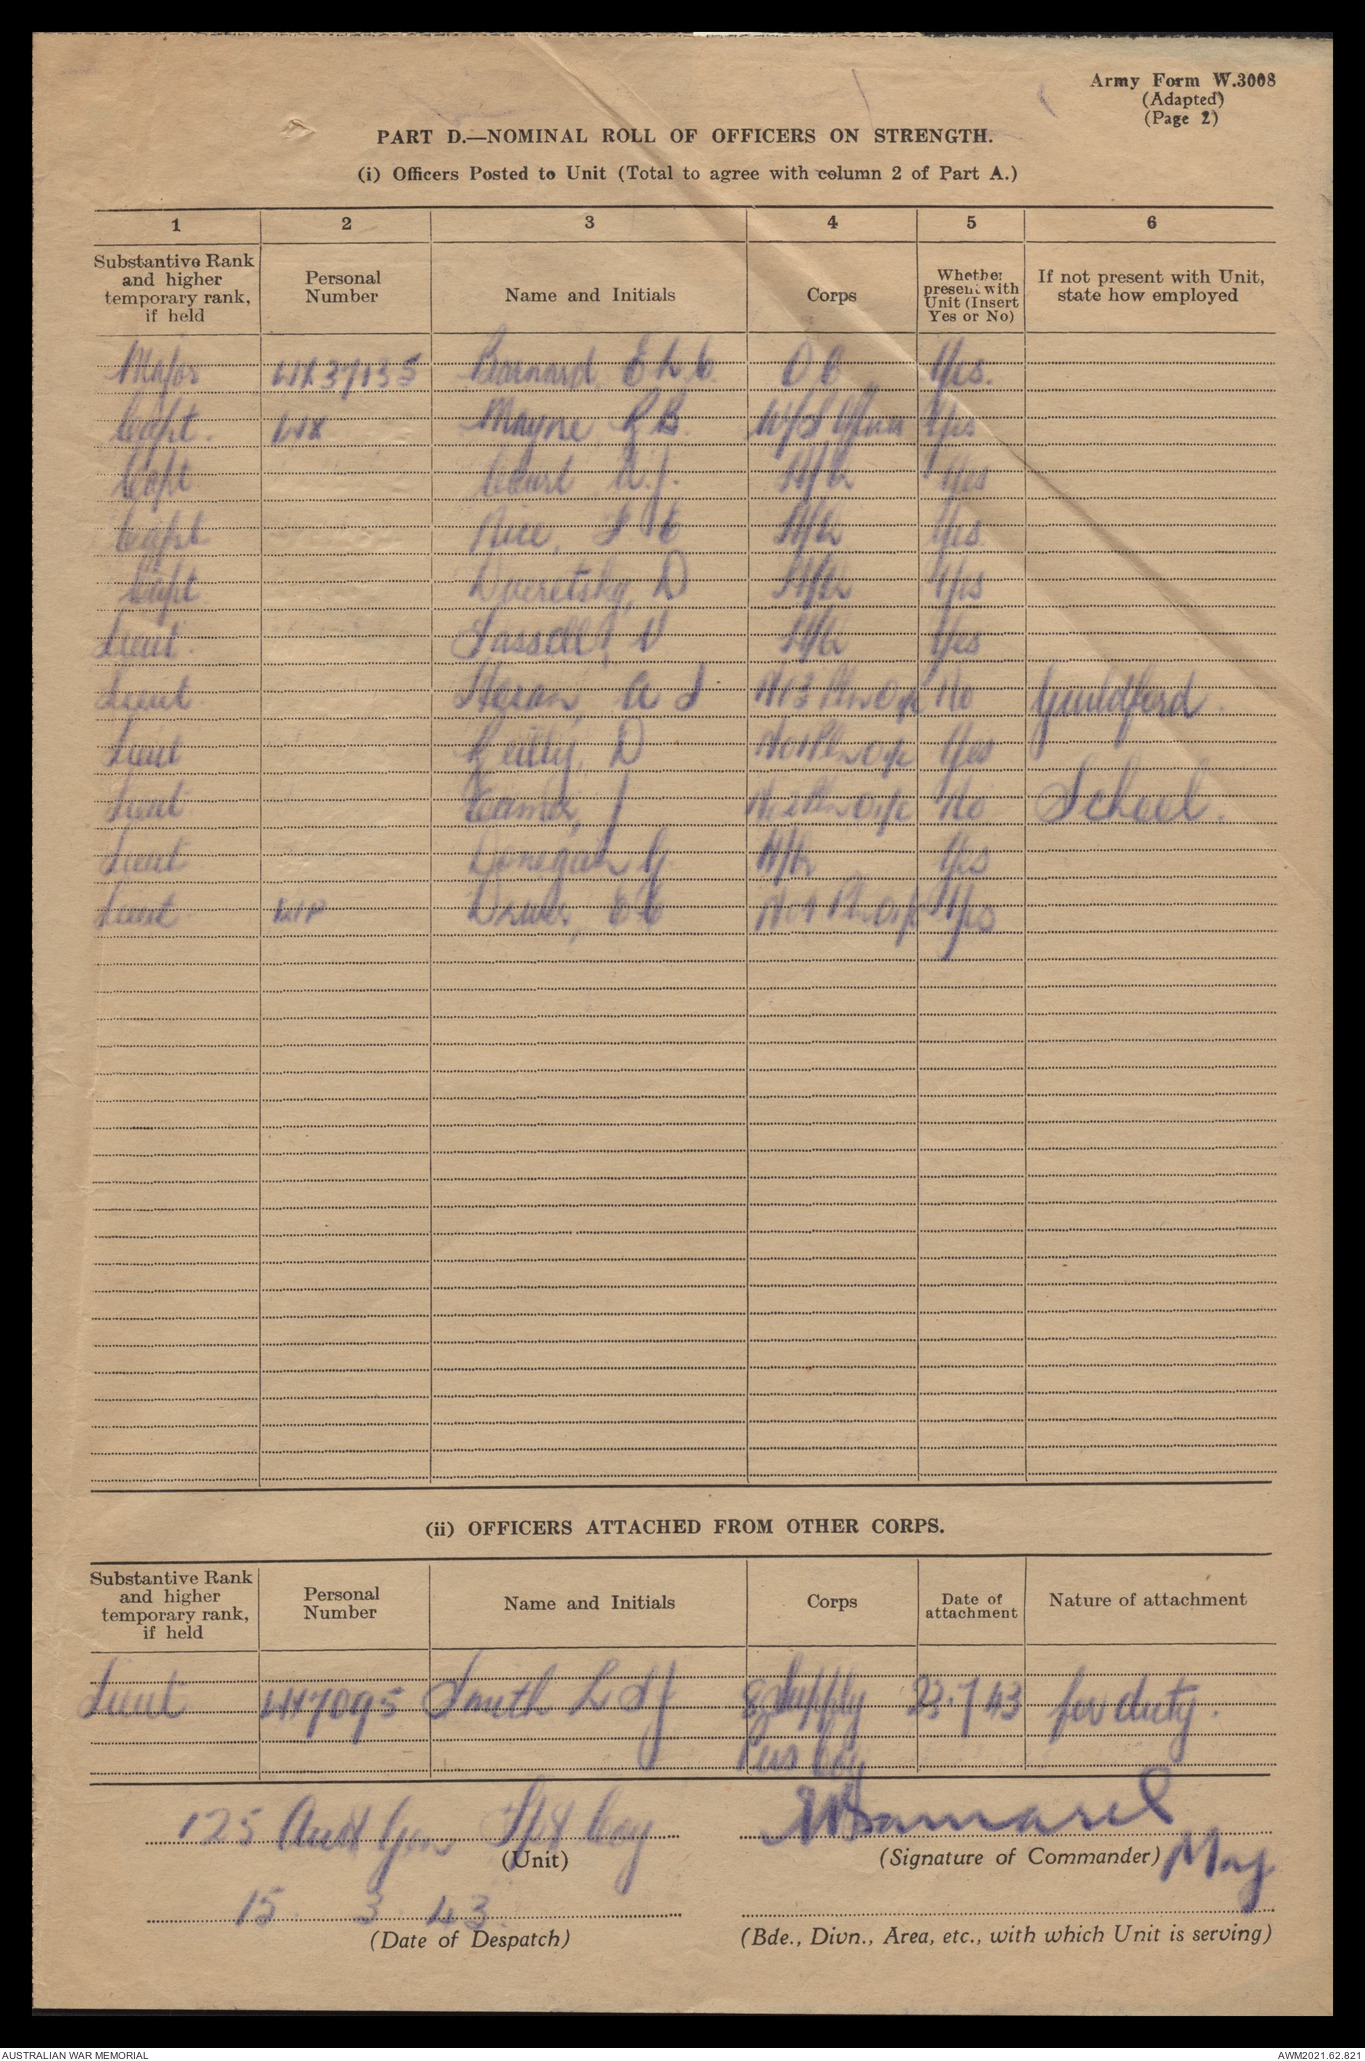 Army Form W.3008
(Adapted)
(Page 2)
PART D.—NOMINAL ROLL OF OFFICERS ON STRENGTH.
(i) Officers Posted to Unit (Total to agree with column 2 of Part A.)
1 2 3 4 5 6
Substantive Rank and higher temporary rank, if held
Personal Number
Name and Initials
Corps
Whether present with Unit (Insert Yes or No)
If not present with Unit, state how employed
Major WX37135 Barnard E L C O C Yes.
Capt. WX Mayne R B. Yes
Capt Court H/Q Yes
Capt Rice, H/Q Yes
Capt Dveretsky, D H/Q Yes
Lieut. V H/Q Yes
Lieut. A J No 3 No Guildford.
Lieut Reilly, D No 1 Yes
Lieut J No 2 No School.
Lieut Donegan G. H/Q Yes
Lieut Driver, C C No 4 Yes
(ii) OFFICERS ATTACHED FROM OTHER CORPS.
Substantive Rank and higher temporary rank, if held
Personal Number
Name and Initials
Corps
Date of attachment
Nature of attachment
Lieut W47095 Smith L S J Supply 23.7.43 for duty.
Pers Coy
125 Aust Gen Tpt Coy
(Unit)
(Signature of Commander) Maj
15. 3. 43.
(Date of Despatch)
(Bde., Divn., Area, etc., with which Unit is serving)
AUSTRALIAN WAR MEMORIAL
AWM2021.62.821